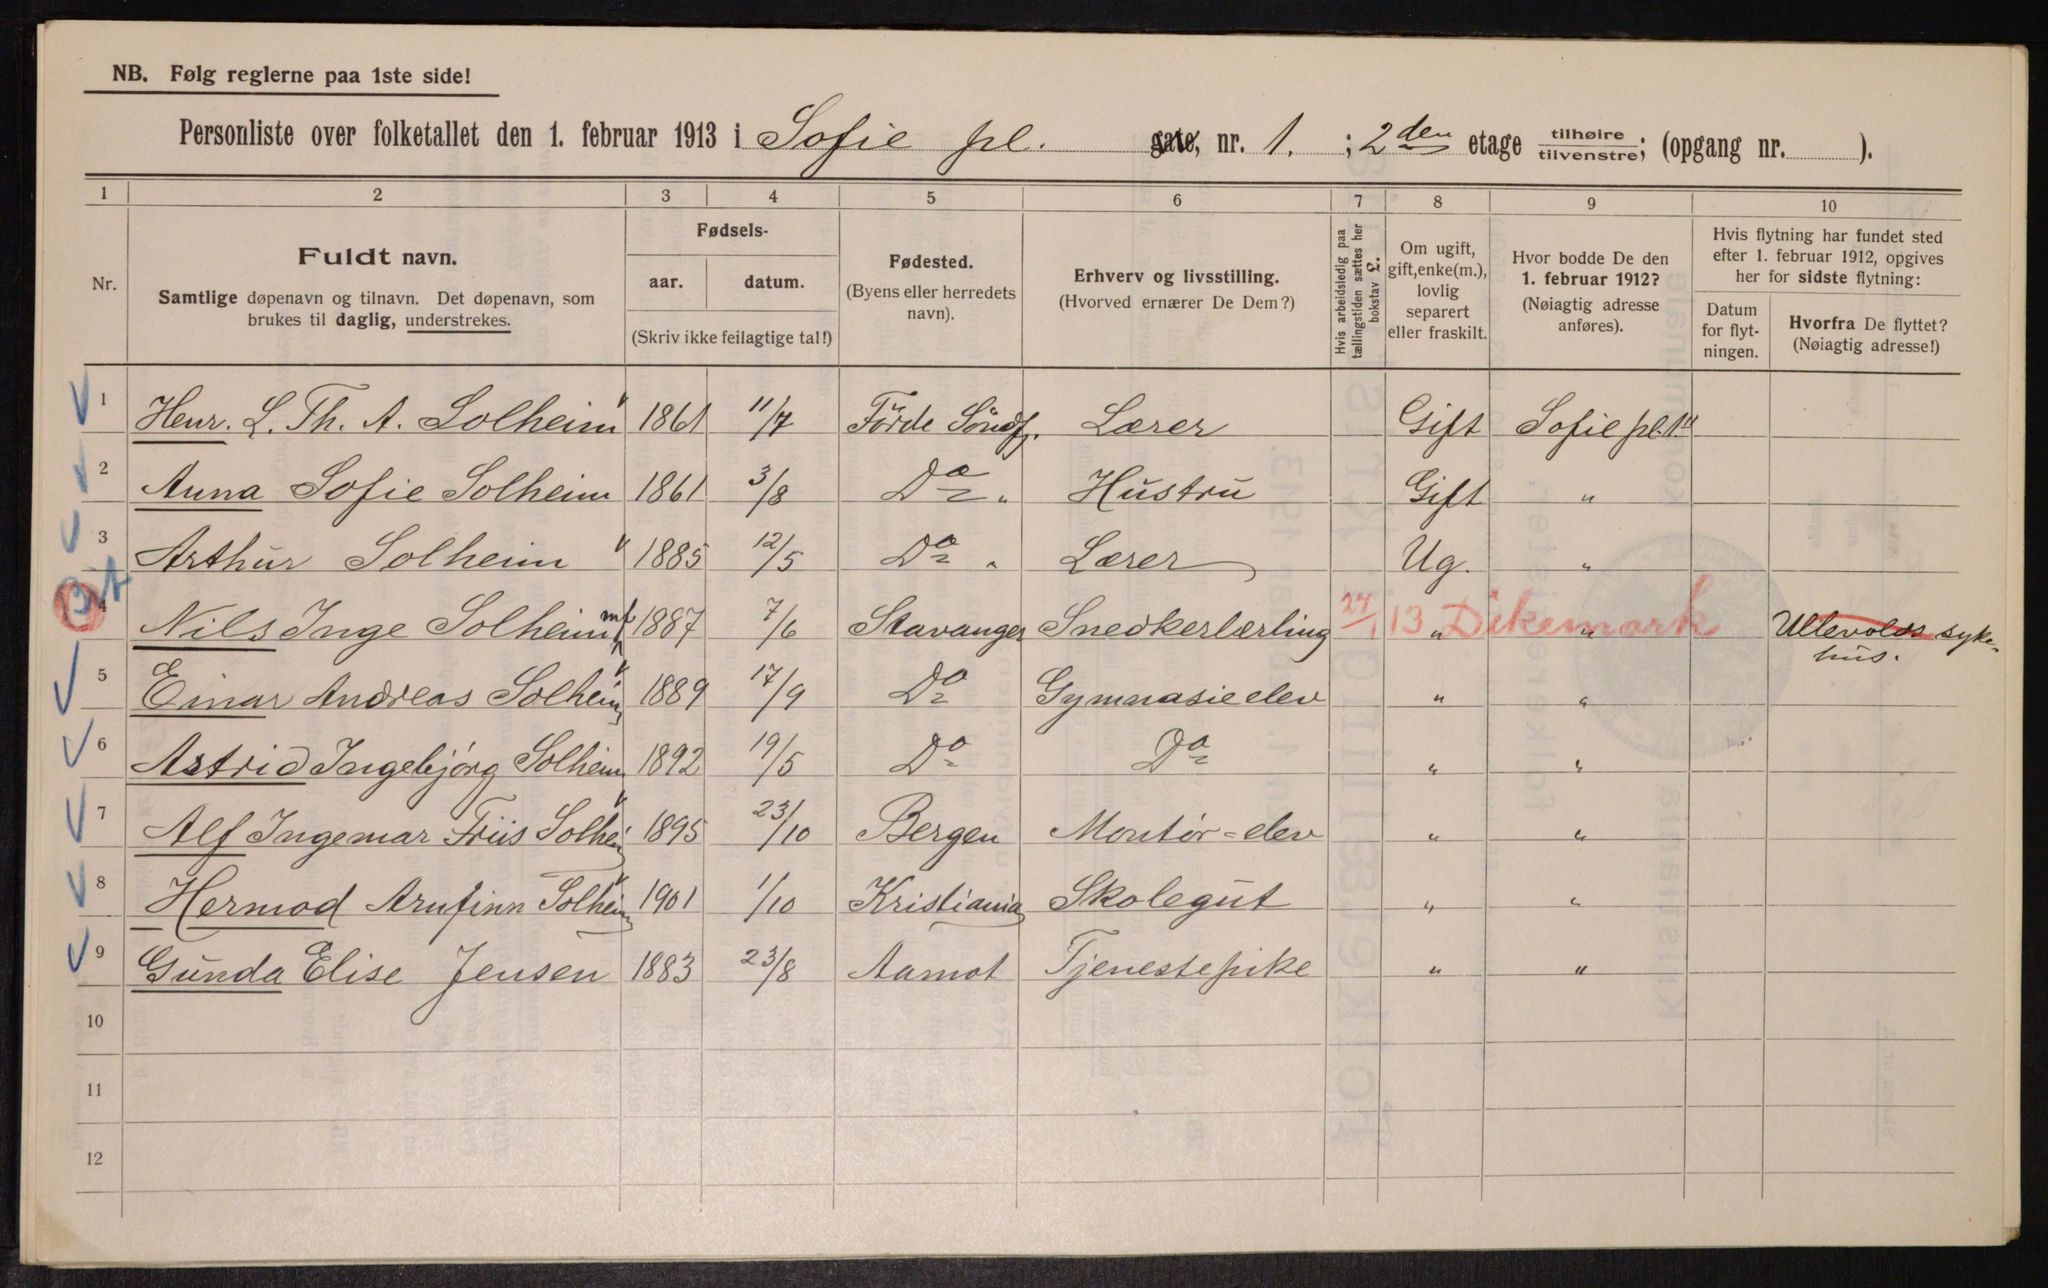 NB. Følg reglerne paa 1ste side!
Personliste over folketallet den 1. februar 1913 i Sofie pl. gate, nr. 1. ; 2den etage tilhøire/tilvenstre; (opgang nr. ).
1 2 3 4 5 6 7 8 9 10
Nr.
Fuldt navn.
Samtlige døpenavn og tilnavn. Det døpenavn, som
brukes til daglig, understrekes.
Fødsels-
aar. datum.
(Skriv ikke feilagtige tal!)
Fødested.
(Byens eller herredets
navn).
Erhverv og livsstilling.
(Hvorved ernærer De Dem?)
Hvis arbeidsledig paa
tællingstiden sættes her
bokstav L.
Om ugift,
gift, enke(m.),
lovlig
separert
eller fraskilt.
Hvor bodde De den
1. februar 1912?
(Nøiagtig adresse
anføres).
Hvis flytning har fundet sted
efter 1. februar 1912, opgives
her for sidste flytning:
Datum
for flyt-
ningen.
Hvorfra De flyttet?
(Nøiagtig adresse!)
1 Henr. L. Th. A. Solheim 1861 11/7 Förde Söndf. Lærer Gift Sofie pl. 1 II
2 Anna Sofie Solheim 1861 3/8 Do " Hustru Gift "
3 Arthur Solheim 1885 12/5 Do " Lærer Ug. "
4 Nils Inge Solheim 1887 7/6 Stavanger Snedkerlærling 24/1 13 " Dikemark " Ullevolds syke-
hus.
5 Einar Andreas Solheim 1889 17/9 Do Gymnasieelev " "
6 Astrid Ingebjörg Solheim 1892 19/5 Do Do " "
7 Alf Ingemar Friis Solheim 1895 23/10 Bergen Montör-elev " "
8 Hermod Arnfinn Solheim 1901 1/10 Kristiania Skolegut " "
9 Gunda Elise Jensen 1883 23/8 Aamot Tjenestepike " "
10
11
12